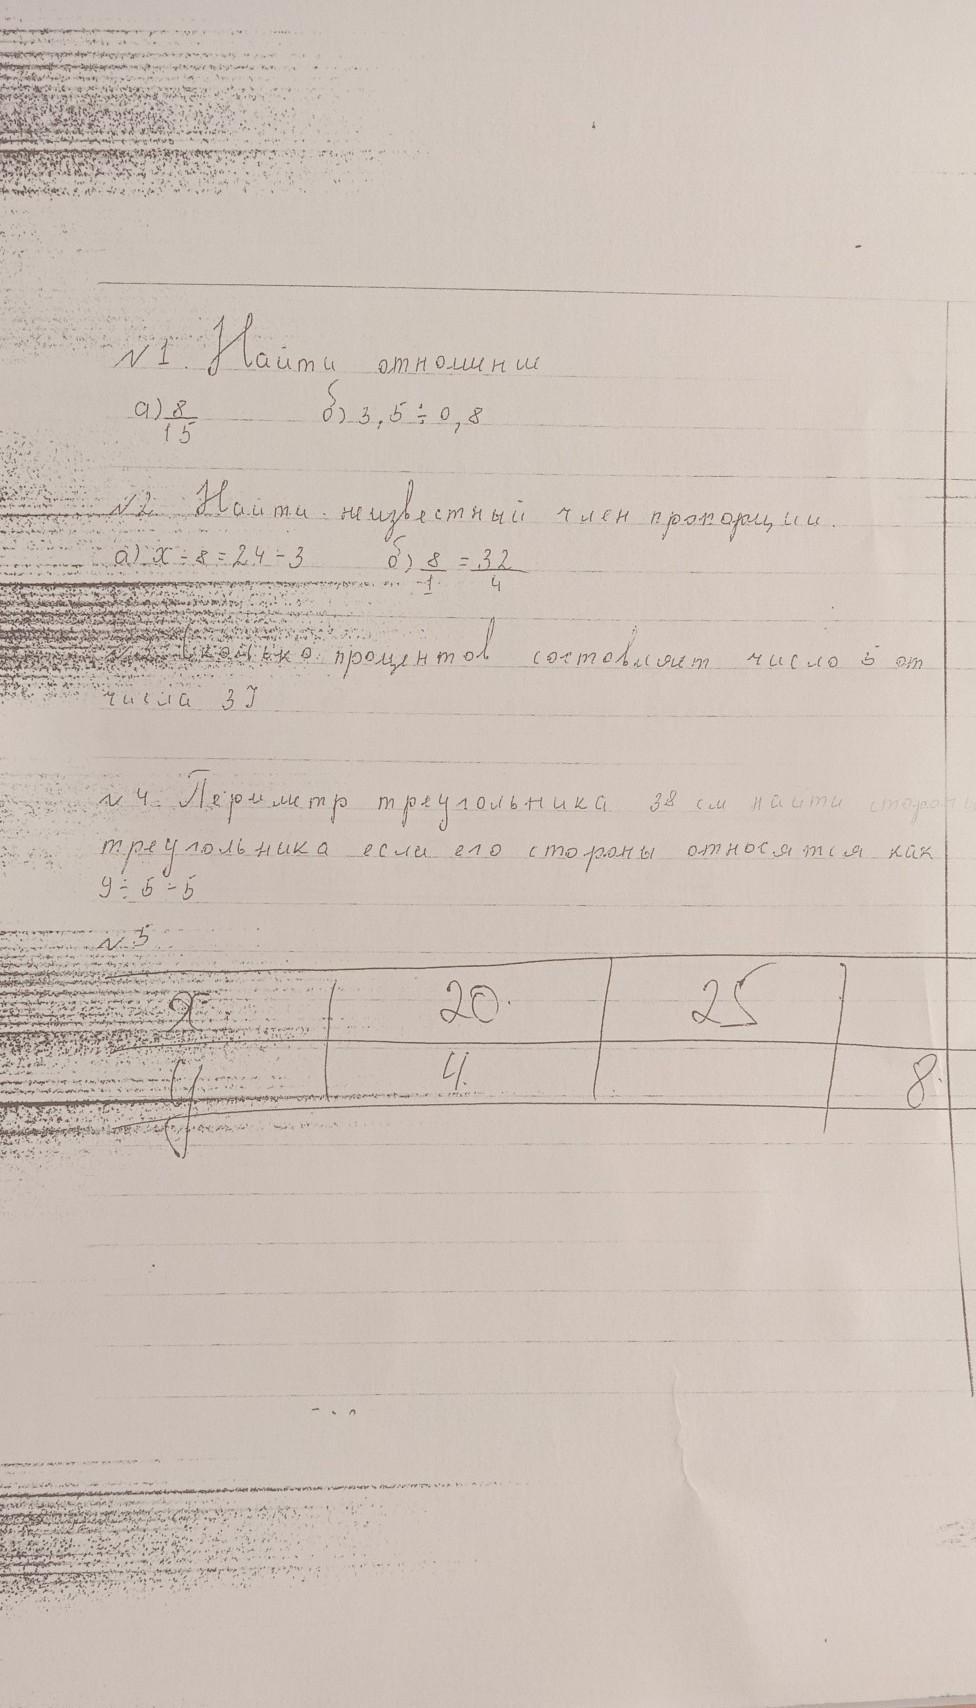 №1. Найти отношение
а) 8/15 б) 3,5÷0,8
№2. Найти неизвестный член пропорции.
а) x÷8=24÷3 б) 8/1=32/4
Сколько процентов составляет число 5 от
числа
№4. Периметр треугольника 38 см найти стороны
треугольника если его стороны относятся как
9÷5÷5
№5.
x 20 25
y 4 8